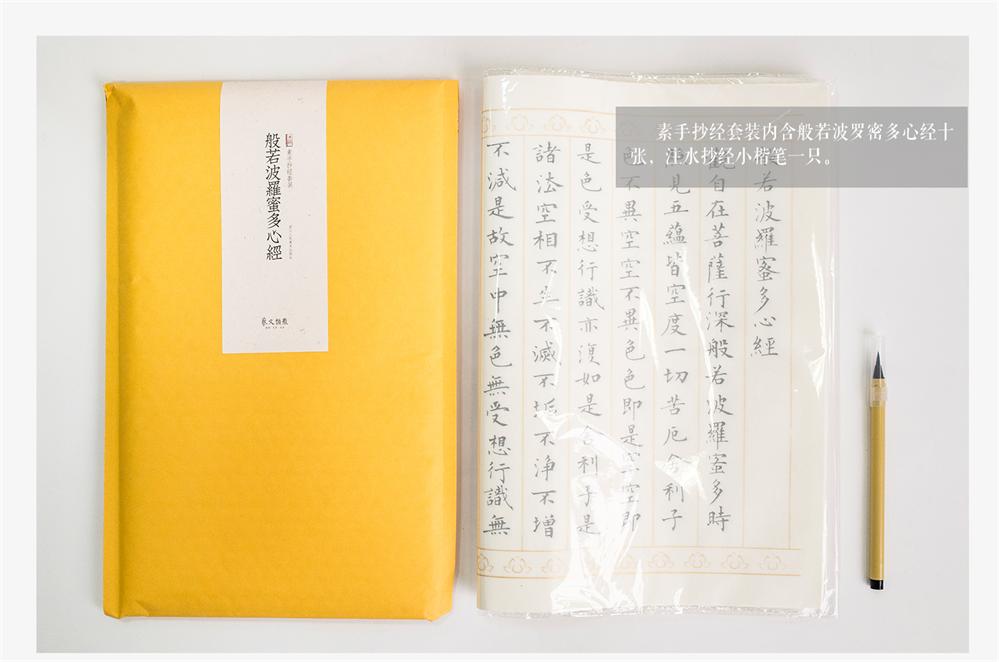 素手抄经套装内含般若波罗密多心经十
张，注水抄经小楷笔一只。
素手抄經套裝
般若波羅蜜多心經
般若波羅蜜多心經
觀自在菩薩行深般若波羅蜜多時
照見五蘊皆空度一切苦厄舍利子
色不異空空不異色色即是空空即
是色受想行識亦復如是舍利子是
諸法空相不生不滅不垢不淨不增
不減是故空中無色無受想行識無